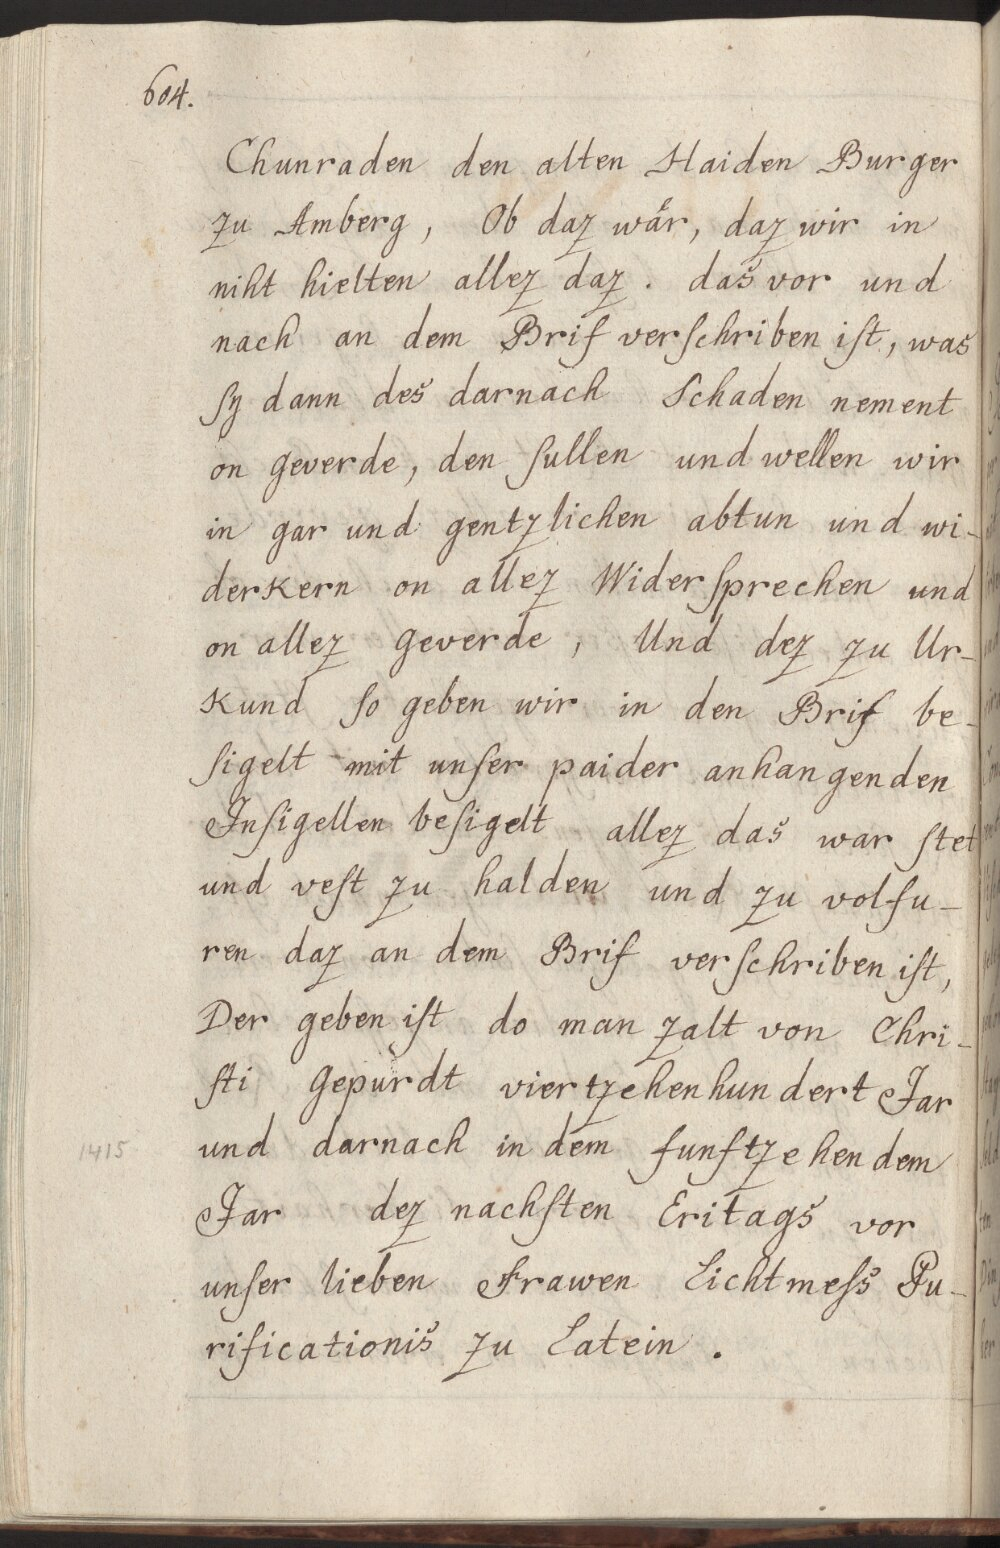 604.
Chunraden den alten Haiden Burger
zu Amberg, Ob daz wår, daz wir in
niht hielten allez daz. das vor und
nach an dem Brif verschriben ist, was
sy dann des darnach Schaden nement
on geverde, den sullen und wellen wir
in gar und gentzlichen abtun und wi-
derkern on allez Widersprechen und
on allez geverde, Und dez zu Ur-
kund so geben wir in den Brif be-
sigelt mit unser paider anhangenden
Insigellen besigelt allez das war stet
und vest zu halden und zu volfu-
ren daz an dem Brif verschriben ist,
Der geben ist do man zalt von Chri-
sti gepurdt viertzehenhundert Jar
1415
und darnach in dem funftzehendem
Jar dez nachsten Eritags vor
unser lieben Frawen Lichtmess Pu-
rificationis zu Latein.